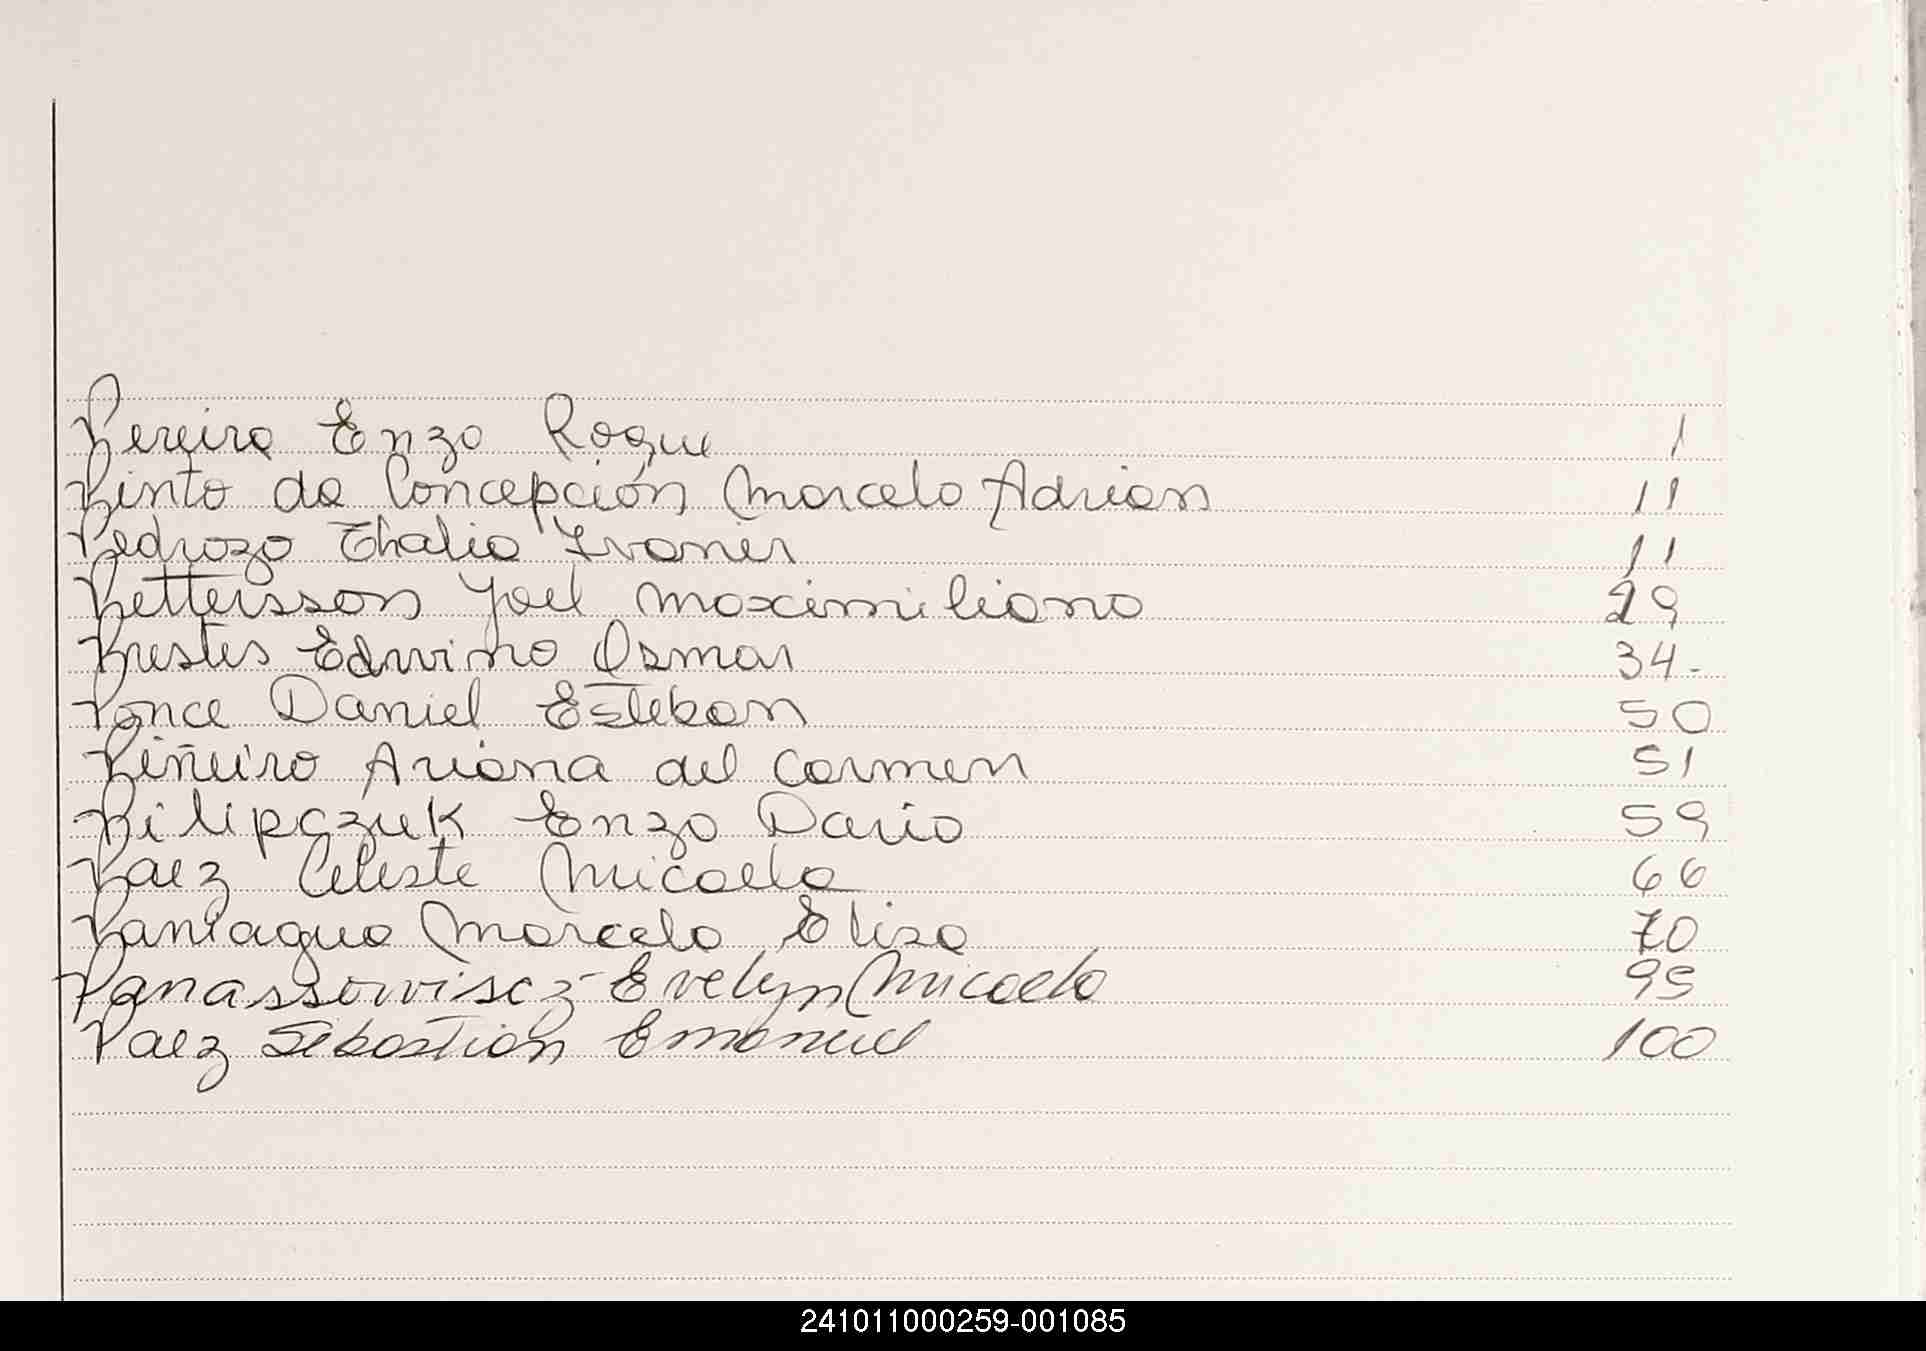 Pereira Enzo Roque 1
Pinto da Concepción Marcelo Adrian 11
Pedrozo Thalia Ivanir 11
Pettersson Joel Maximiliano 29
Prestes Edwino Osmar 34-
Ponce Daniel Esteban 50
Piñeiro Ariana del Carmen 51
Pilipczuk Enzo Dario 59
Paez Celeste Micaela 66
Paniagua Marcelo Elisa 70
Panassowiscz Evelyn Micaela 95
Paez Sebastian Emanuel 100
241011000259-001085